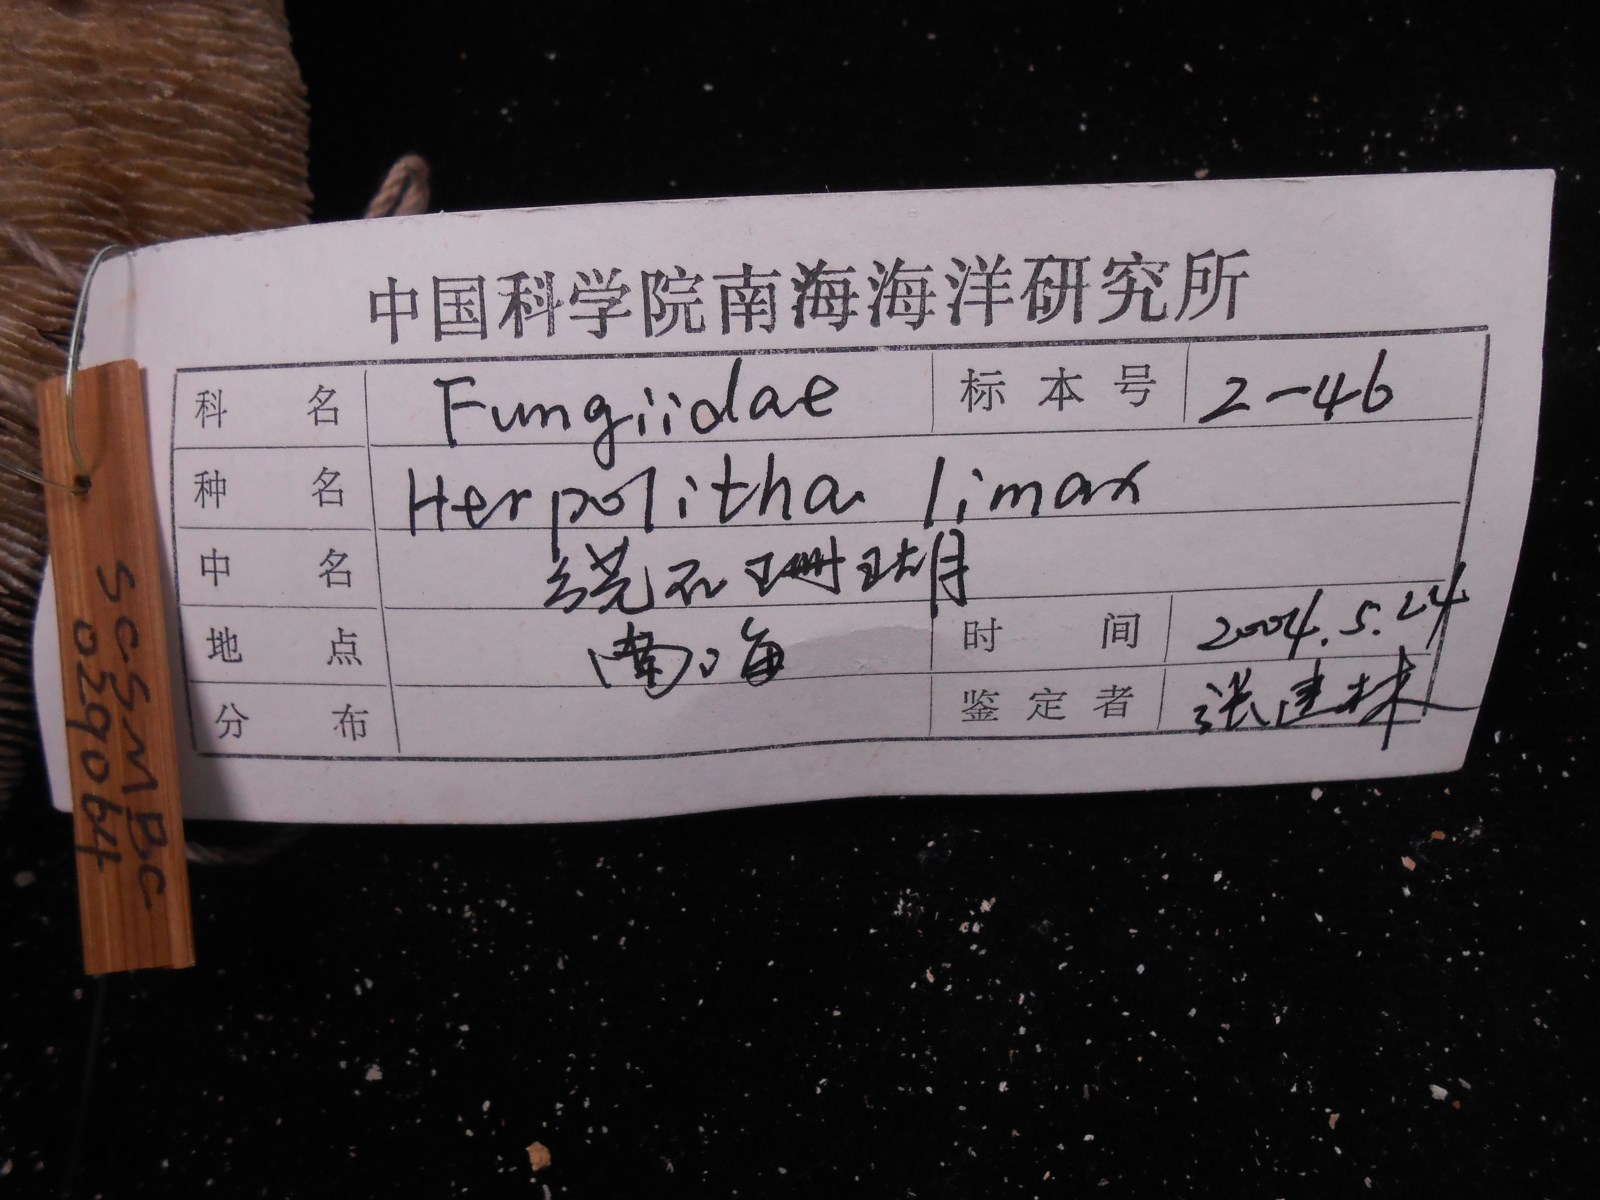 中国科学院南海海洋研究所
科名 Fungiidae 标本号 2-46
种名 Herpolitha limax
中名 绕石珊瑚
地点 南海 时间 2004.5.24
分布 鉴定者 张建林
SCSMBC
029064